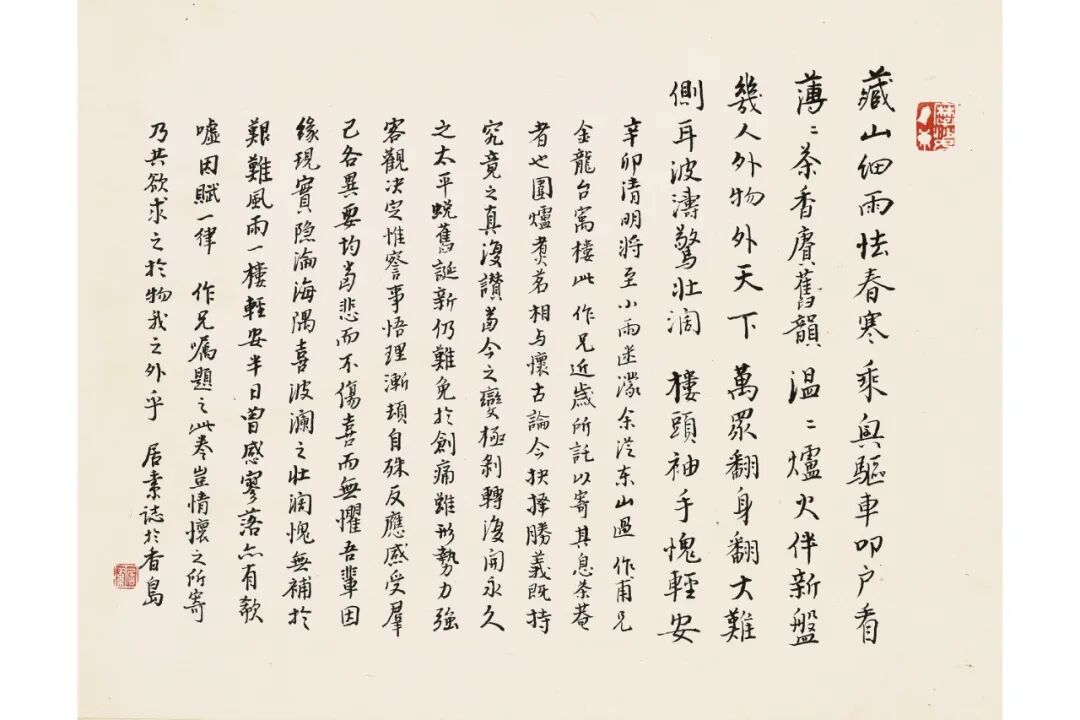 藏山细雨怯春寒 乘興驅車叩户看
薄〻茶香賡舊韻 温〻爐火伴新盤
幾人外物外天下 萬眾翻身翻大難
側耳波濤驚壯阔 樓頭袖手愧輕安
辛卯清明將至小雨迷濛余从东山過 作甫兄
金龍台寓樓此 作兄近歲所託以寄其息茶菴
者也圍爐煮茗相与懷古論今抉擇勝義既持
究竟之真復讚當今之變極剥轉復開永久
之太平蜕舊誕新仍難免於創痛雖形勢力强
客觀决定惟察事悟理漸頓自殊反應感受羣
己各異要均當悲而不傷喜而無懼吾輩因
緣現實隐淪海隅喜波瀾之壯阔愧無補於
艱難風雨一樓輕安半日曾感寥落亦有欷
嘘因賦一律 作兄嘱題之此卷豈情懷之所寄
乃共欲求之於物我之外乎 居素誌於香島